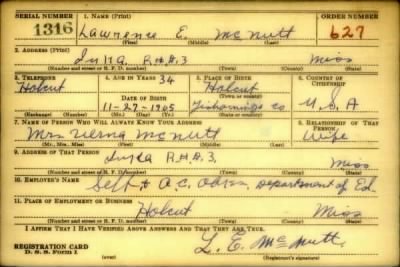 SERIAL NUMBER 1. NAME (Print) ORDER NUMBER
1316 Lawrence E. McNutt 627
(First) (Middle) (Last)
2. ADDRESS (Print)
R#3 Miss
(Number and street or R. F. D. number) (Town) (County) (State)
3. TELEPHONE 4. AGE IN YEARS 34 5. PLACE OF BIRTH 6. COUNTRY OF CITIZENSHIP
Holcut DATE OF BIRTH Holcut
11-27-1905 Tishomingo Co U.S.A
(Exchange) (Number) (Mo.) (Day) (Yr.) (Town or county) (State or country)
7. NAME OF PERSON WHO WILL ALWAYS KNOW YOUR ADDRESS 8. RELATIONSHIP OF THAT PERSON
Mrs. Verna McNutt Wife
(Mr., Mrs., Miss) (First) (Middle) (Last)
9. ADDRESS OF THAT PERSON
R#3, Miss
(Number and street or R. F. D. number) (Town) (County) (State)
10. EMPLOYER'S NAME
Self & A.C. Department of Ed.
11. PLACE OF EMPLOYMENT OR BUSINESS
Holcut Miss
(Number and street or R. F. D. number) (Town) (County) (State)
I AFFIRM THAT I HAVE VERIFIED ABOVE ANSWERS AND THAT THEY ARE TRUE.
REGISTRATION CARD L. E. McNutt
D. S. S. Form 1 (over) (Registrant's signature)